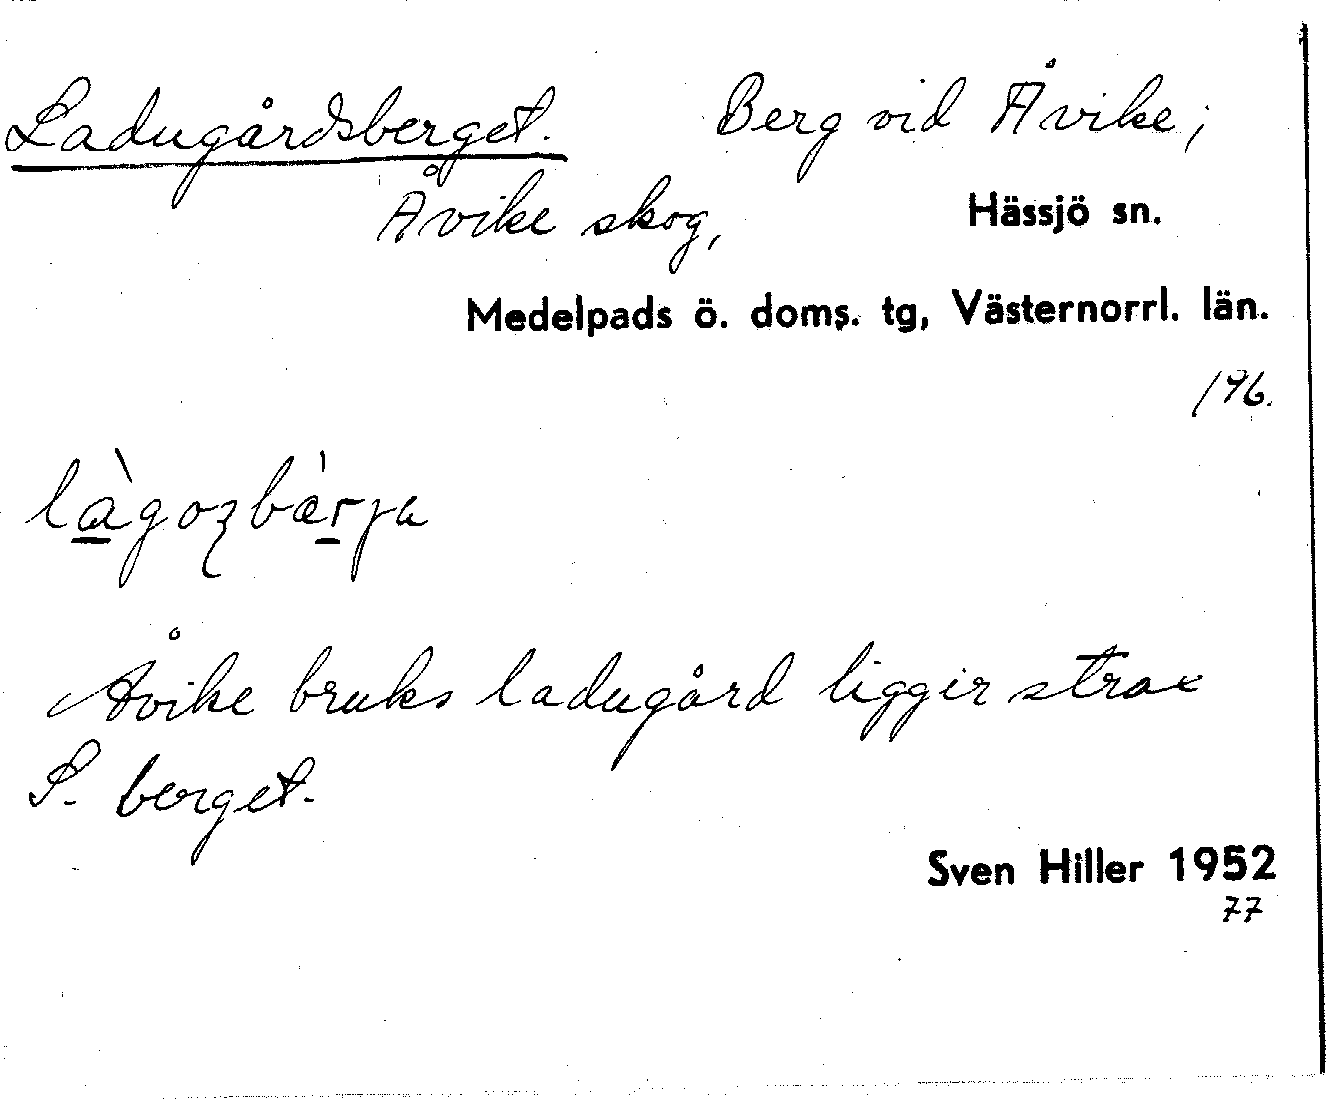 Ladugårdsberget. Berg vid Åvike;
Åvike skog, Hässjö sn.
Medelpads ö. doms. tg, Västernorrl. län.
196.
làgozbàrja
Åvike bruks ladugård ligger strax
S. berget.
Sven Hiller 1952
77